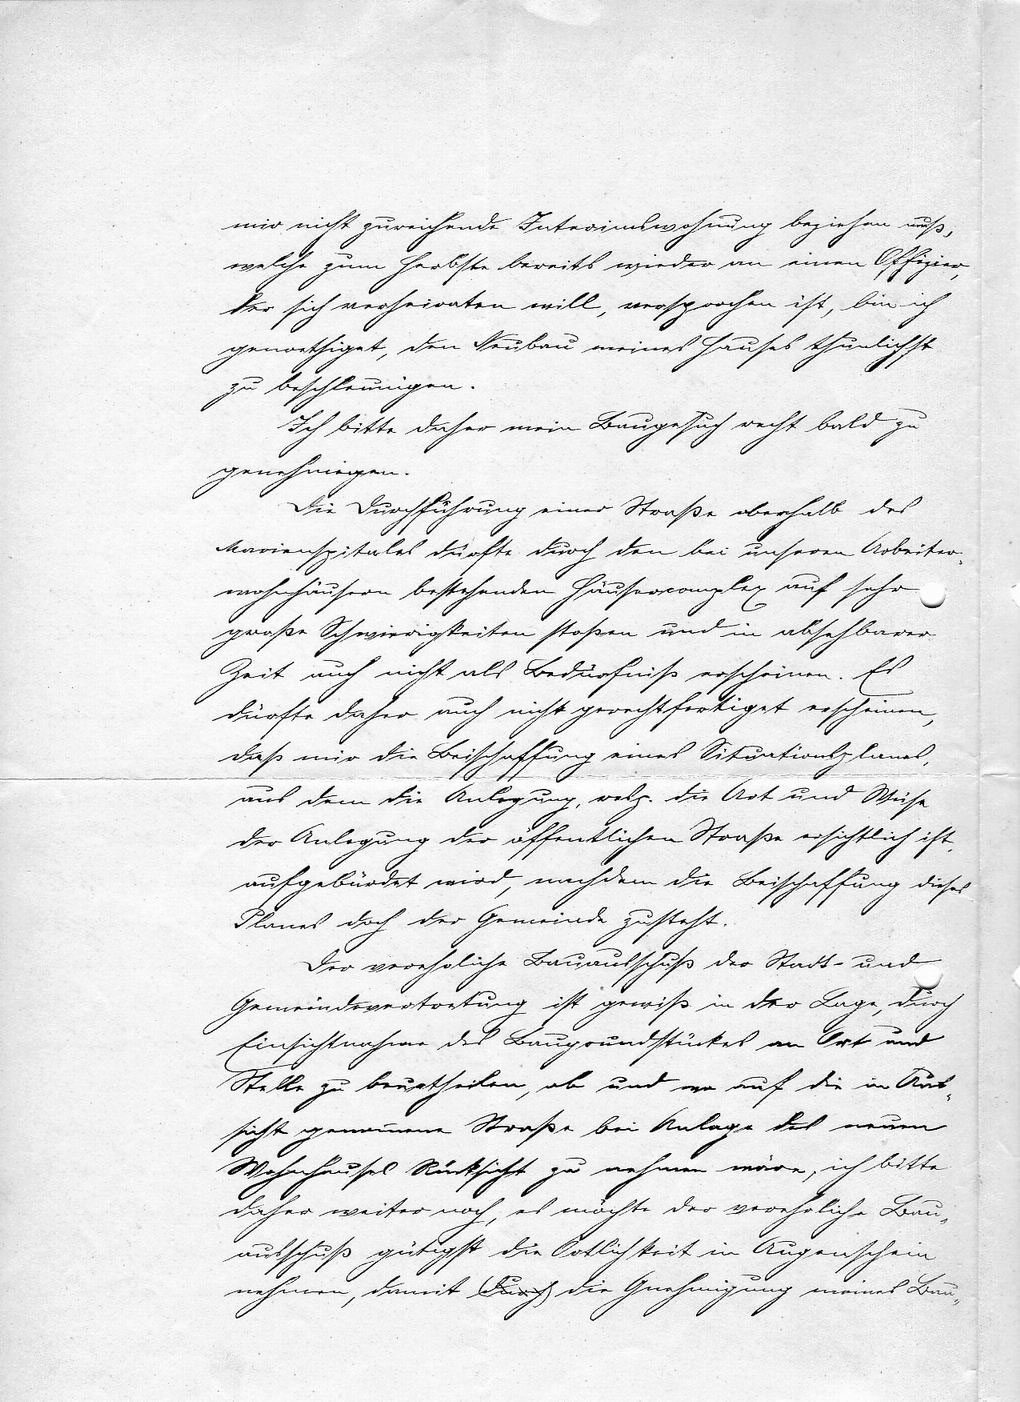 mir nicht zureichende Interimswohnung beziehen muß,
welche zum Herbste bereits wieder an einen Offizier,
der sich verheiraten will, versprochen ist, bin ich
genoethiget, den Neubau meines Hauses thunlichst
zu beschleunigen.
Ich bitte daher mein Baugesuch recht bald zu
genehmigen.
Die Durchführung einer Straße oberhalb des
Marienspitales dürfte durch den bei unseren Arbeiter-
wohnhäusern bestehenden Häusercomplex auf sehr
große Schwierigkeiten stoßen und in absehbarer
Zeit auch nicht als Bedürfniß erscheinen. Es
dürfte daher auch nicht gerechtfertiget erscheinen,
daß mir die Beischaffung eines Situationsplanes,
aus dem die Anlegung, resp. die Art und Weise
der Anlegung der öffentlichen Straße ersichtlich ist,
aufgebürdet wird, nachdem die Beischaffung dieses
Planes doch der Gemeinde zusteht.
Der verehrliche Bauausschuß der Stadt- und
Gemeindevertretung ist gewiß in der Lage, durch
Einsichtnahme des Baugrundstückes an Ort und
Stelle zu beurtheilen, ob und wo auf die in Aus-
sicht genommene Straße bei Anlage des neuen
Wohnhauses Rücksicht zu nehmen wäre, ich bitte
daher weiter noch, es möchte der verehrliche Bau-
ausschuß gütigst die Örtlichkeit in Augenschein
nehmen, damit (durch) die Gnehmigung meines Bau-